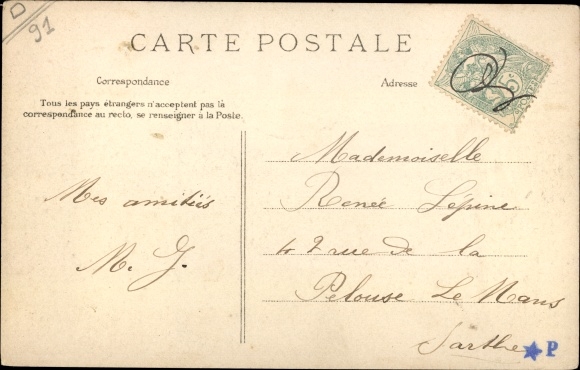 D
91
CARTE POSTALE
Correspondance
Adresse
Tous les pays étrangers n'acceptent pas là
correspondance au recto, se renseigner à la Poste.
Mes amitiés
M. J.
Mademoiselle
Renée Lépine
42 rue de la
Pelouse Le Mans
Sarthe
P